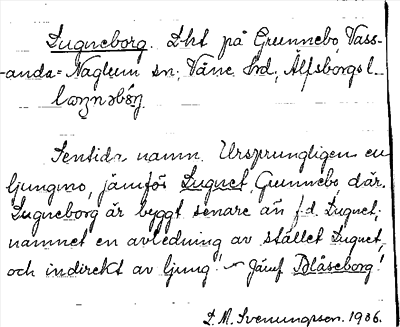 Lugneborg. Lht på Grunnebo, Vass-
-anda-Naglum sn; Väne hrd, Älfsborgs l.
Sentida namn. Ursprungligen en
ljungmo, jämför Lugnet, Grunnebo, där.
Lugneborg är byggt senare än f.d. Lugnet;
namnet en avledning av stället Lugnet,
och indirekt av ljung. - Jämf Blåseborg!
L. M. Svenungsson. 1936.